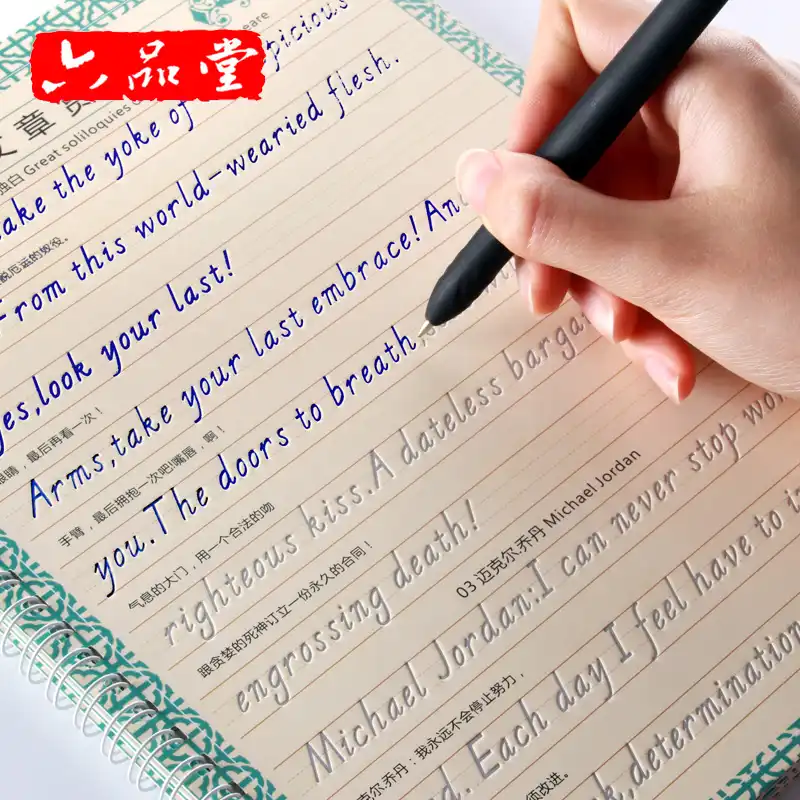 六品堂
文章
独白 Great soliloquies
take the yoke of
脱厄运的奴役。
From this world-wearied flesh.
look your last!
眼睛，最后再看一次！
Arms,take your last embrace! And
手臂，最后拥抱一次吧!嘴唇，啊！
you.The doors to breath
气息的大门，用一个合法的吻
righteous kiss.A dateless
跟贪婪的死神订立一份永久的合同！
engrossing death!
03 迈克尔.乔丹 Michael Jordan
Michael Jordan:I can never stop
克尔.乔丹：我永远不会停止努力，
Each day I feel have to
须改进。
determination